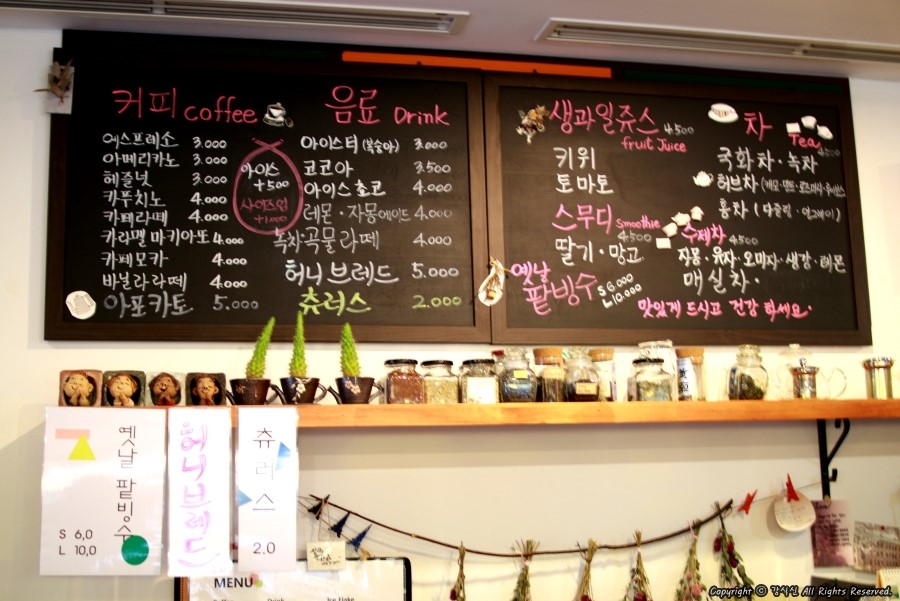 커피 coffee
에스프레소 3.000
아메리카노 3.000
헤즐넛 3.000
카푸치노 4.000
카페라떼 4.000
카라멜 마키아또 4.000
카페모카 4.000
바닐라라떼 4.000
아포카토 5.000
아이스
+500
사이즈업
+1.000
음료 Drink
아이스티 (복숭아) 3.000
코코아 3.500
아이스쵸코 4.000
레몬·자몽에이드 4.000
녹차·곡물라떼 4.000
허니브레드 5.000
츄러스 2.000
생과일쥬스 4500
fruit Juice
키위
토마토
스무디 Smoothie
4500
딸기·망고
옛날
팥빙수 S 6.000
L 10.000
차 Tea
4500
국화차·녹차
허브차
홍차
수제차 4500
자몽·유자·오미자·생강·레몬
매실차·
맛있게 드시고 건강 하세요·
옛날 팥빙수
S 6,0
L 10,0
허니브레드
츄러스
2.0
MENU
Drink
Copyright ⓒ All Rights Reserved.